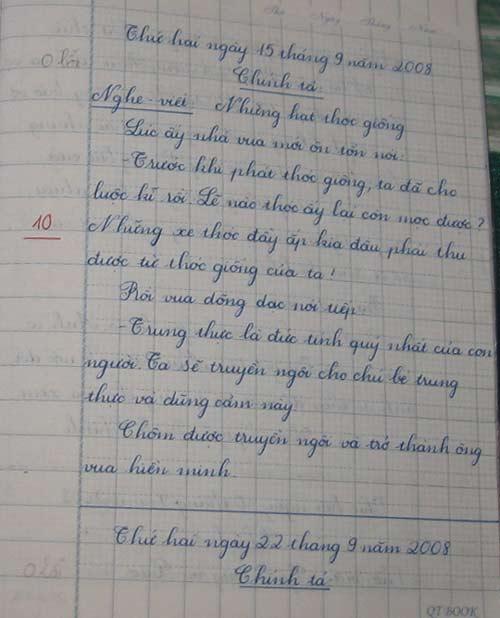 Thứ Ngày Tháng Năm
Thứ hai ngày 15 tháng 9 năm 2008
0 lỗi
Chính tả
Nghe-viết: Những hạt thóc giống
Lúc ấy nhà vua mới ôn tồn nói:
-Trước khi phát thóc giống, ta đã cho
luộc kĩ rồi. Lẽ nào thóc ấy lại còn mọc được?
10
Những xe thóc đầy ắp kia đâu phải thu
được từ thóc giống của ta!
Rồi vua dõng dạc nói tiếp:
-Trung thực là đức tính quý nhất của con
người. Ta sẽ truyền ngôi cho chú bé trung
thực và dũng cảm này.
Chôm được truyền ngôi và trở thành ông
vua hiền minh.
Thứ hai ngày 22 tháng 9 năm 2008
Chính tả
QT BOOK